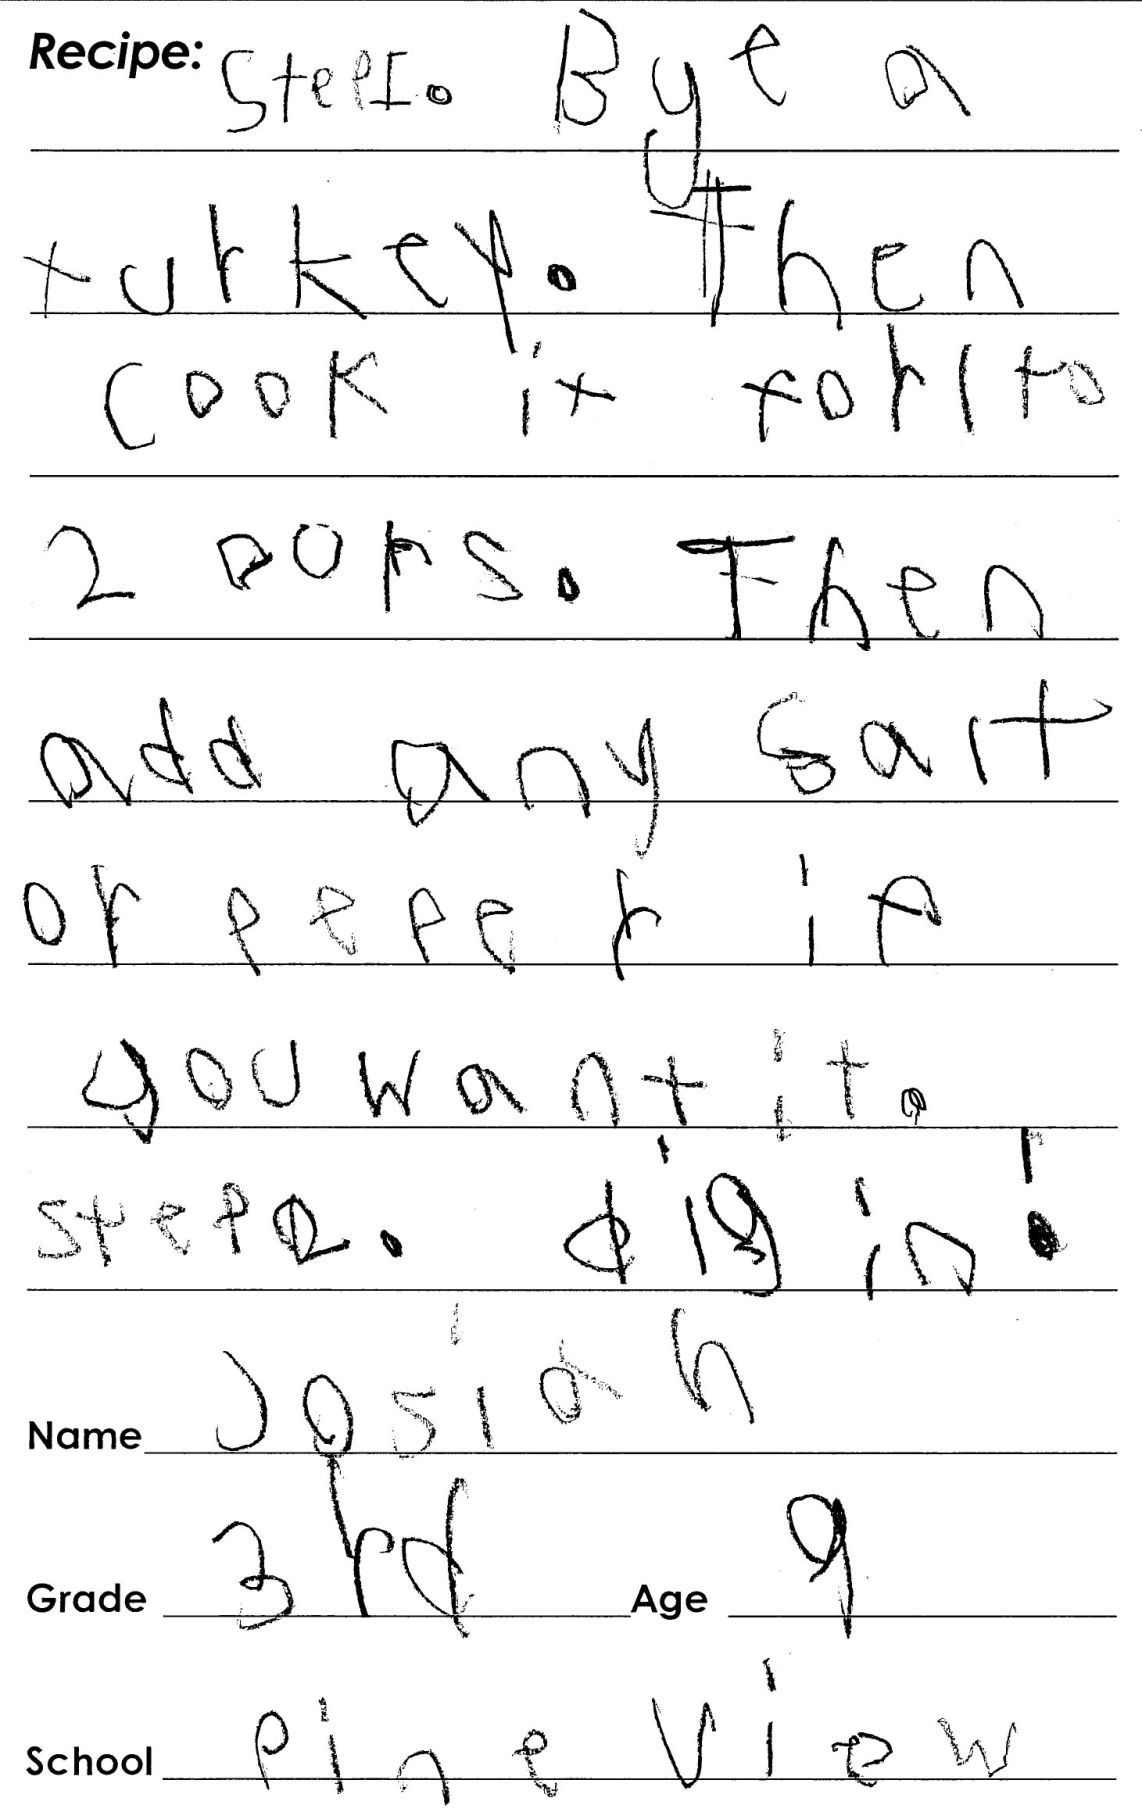 Recipe: Step1. Bye a
turkey. Then
cook it for 1 to
2 oors. Then
add any sart
or peper if
you want it.
step2. dig in!
Name Josiah
Grade 3rd Age 9
School Pine View